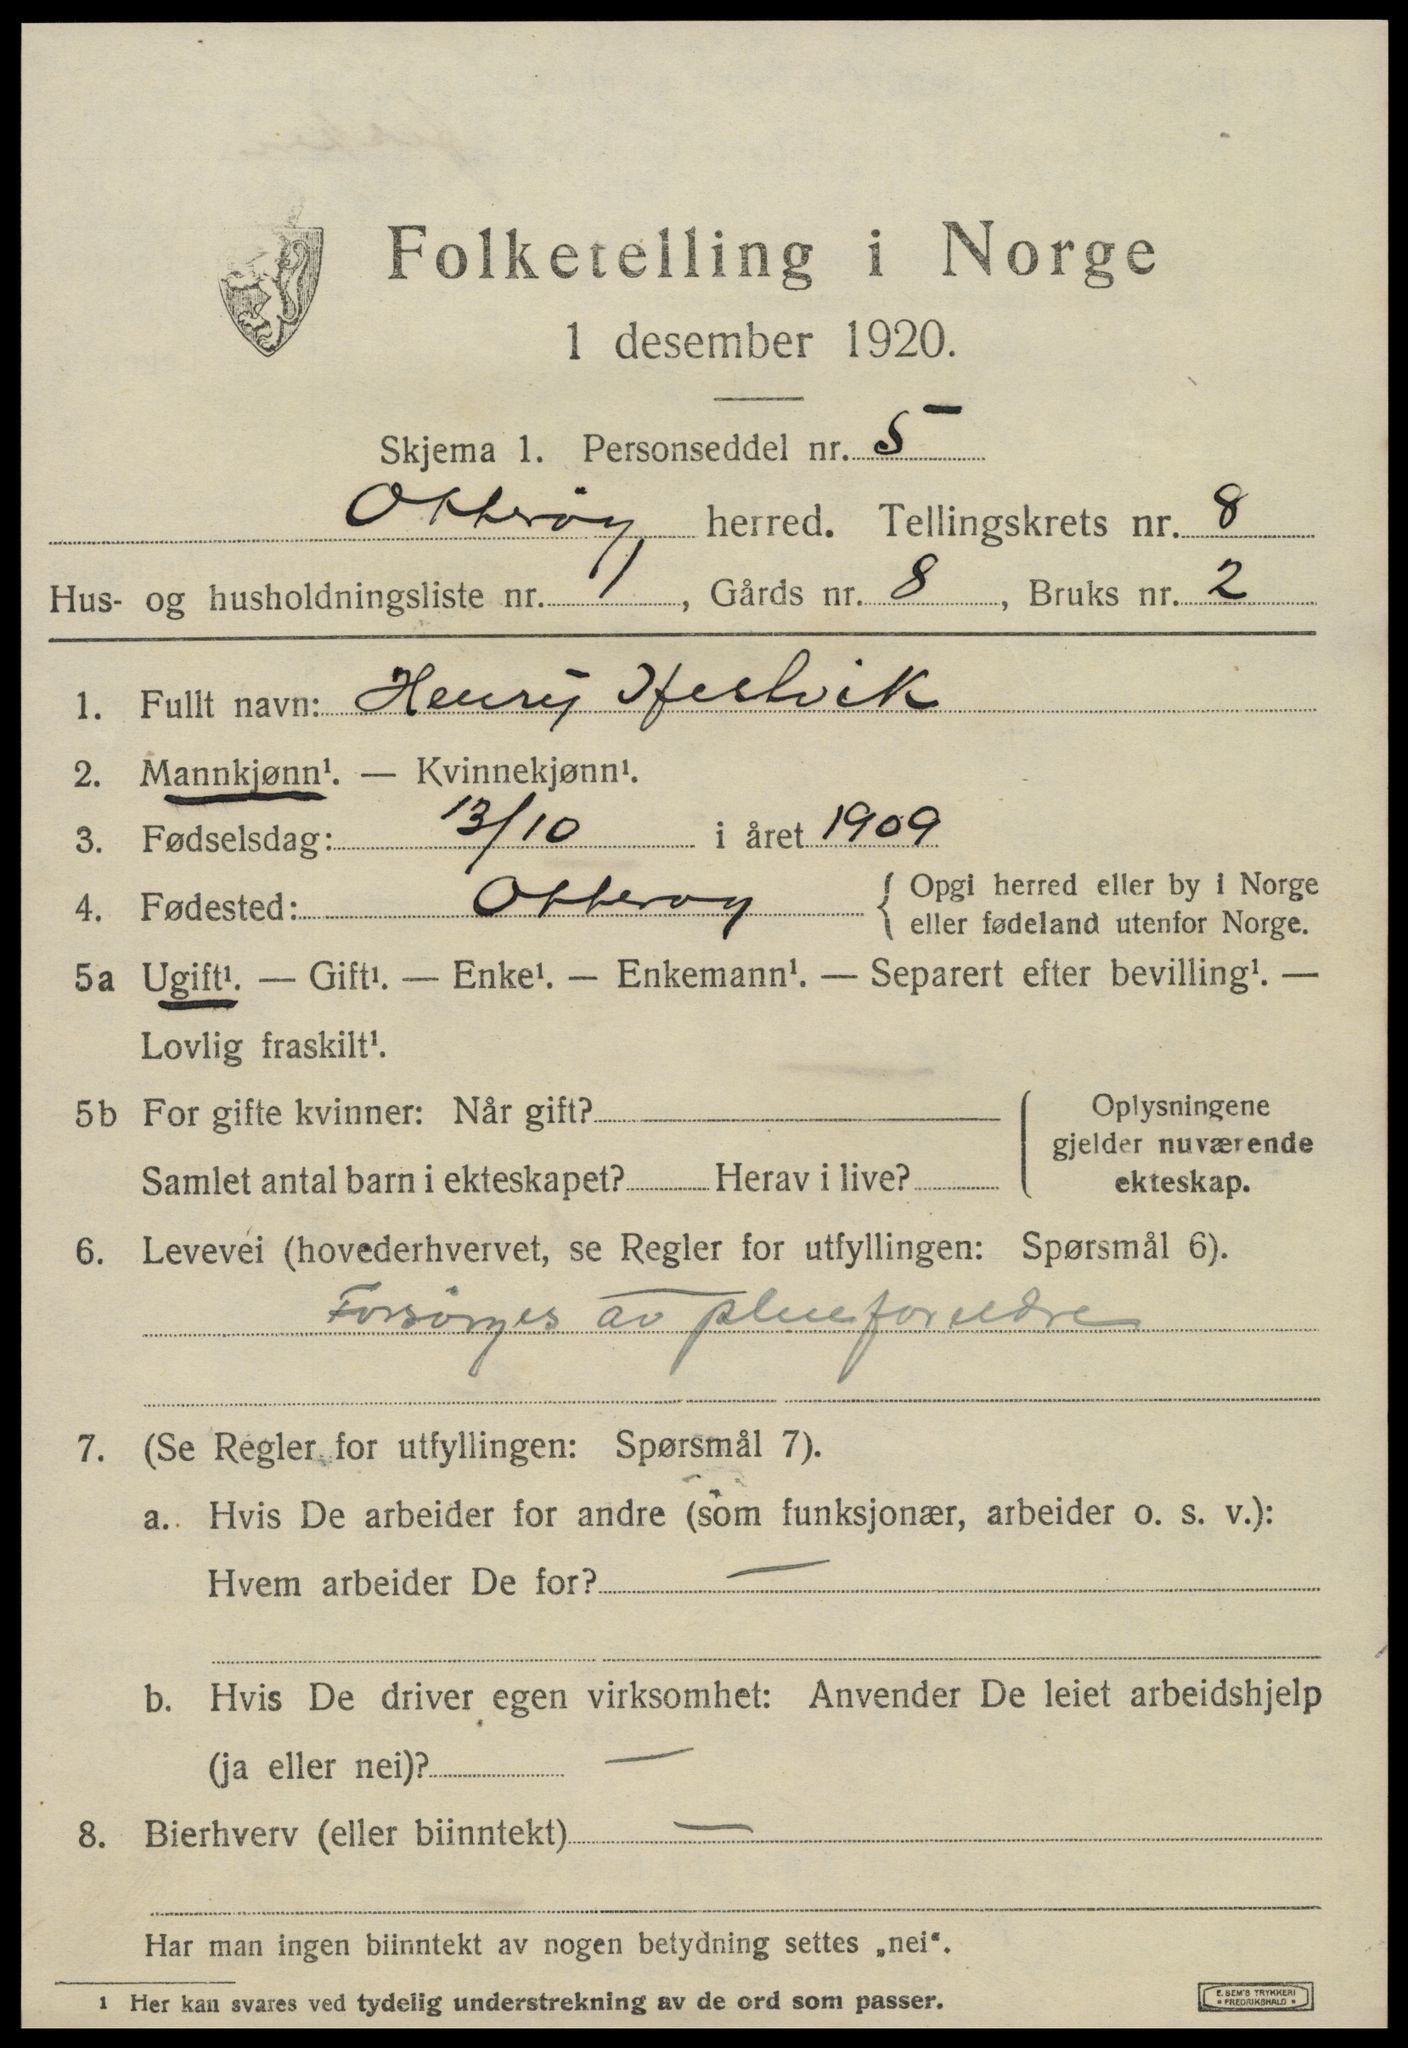 Folketelling i Norge
1 desember 1920.
Skjema 1. Personseddel nr. 5
Otterøy herred. Tellingskrets nr. 8
Hus- og husholdningsliste nr. 1, Gårds nr. 8, Bruks nr. 2
1. Fullt navn: Henry Hestvik
2. Mannkjønn¹. — Kvinnekjønn¹.
3. Fødselsdag: 13/10 i året 1909
4. Fødested: Otterøy { Opgi herred eller by i Norge
eller fødeland utenfor Norge.
5a Ugift¹. — Gift¹. — Enke¹. — Enkemann¹. — Separert efter bevilling¹. —
Lovlig fraskilt¹.
5b For gifte kvinner: Når gift? { Oplysningene
gjelder nuværende
Samlet antal barn i ekteskapet? Herav i live? ekteskap.
6. Levevei (hovederhvervet, se Regler for utfyllingen: Spørsmål 6).
Forsörges av pleieforeldre
7. (Se Regler for utfyllingen: Spørsmål 7).
a. Hvis De arbeider for andre (som funksjonær, arbeider o. s. v.):
Hvem arbeider De for? —
b. Hvis De driver egen virksomhet: Anvender De leiet arbeidshjelp
(ja eller nei)? —
8. Bierhverv (eller biinntekt) —
Har man ingen biinntekt av nogen betydning settes „nei“.
1 Her kan svares ved tydelig understrekning av de ord som passer.
E. SEM'S TRYKKERI
* FREDRIKSHALD *